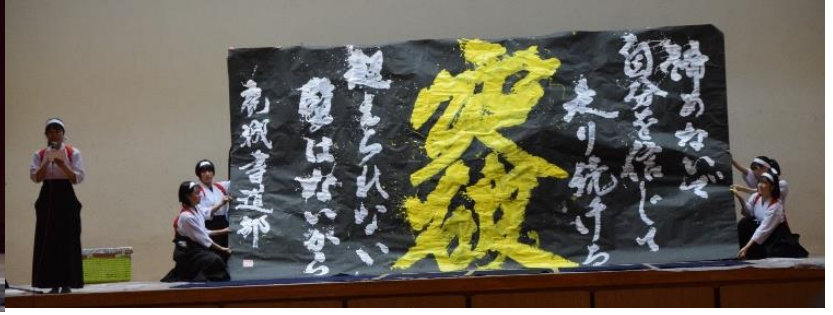 諦めないで
自分を信じて
走り続けろ
突破
超えられない
壁はないから
書道部